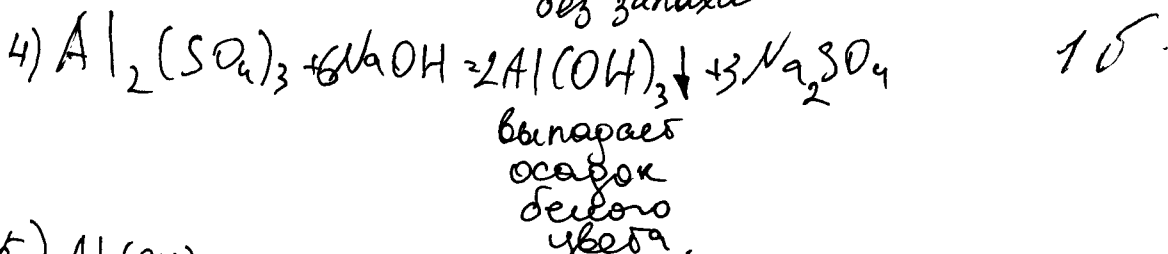 без запаха
4) Al₂(SO₄)₃ + 6NaOH = 2Al(OH)₃↓ + 3Na₂SO₄ 1б
выпадает
осадок
белого
цвета.
5) Al(OH)